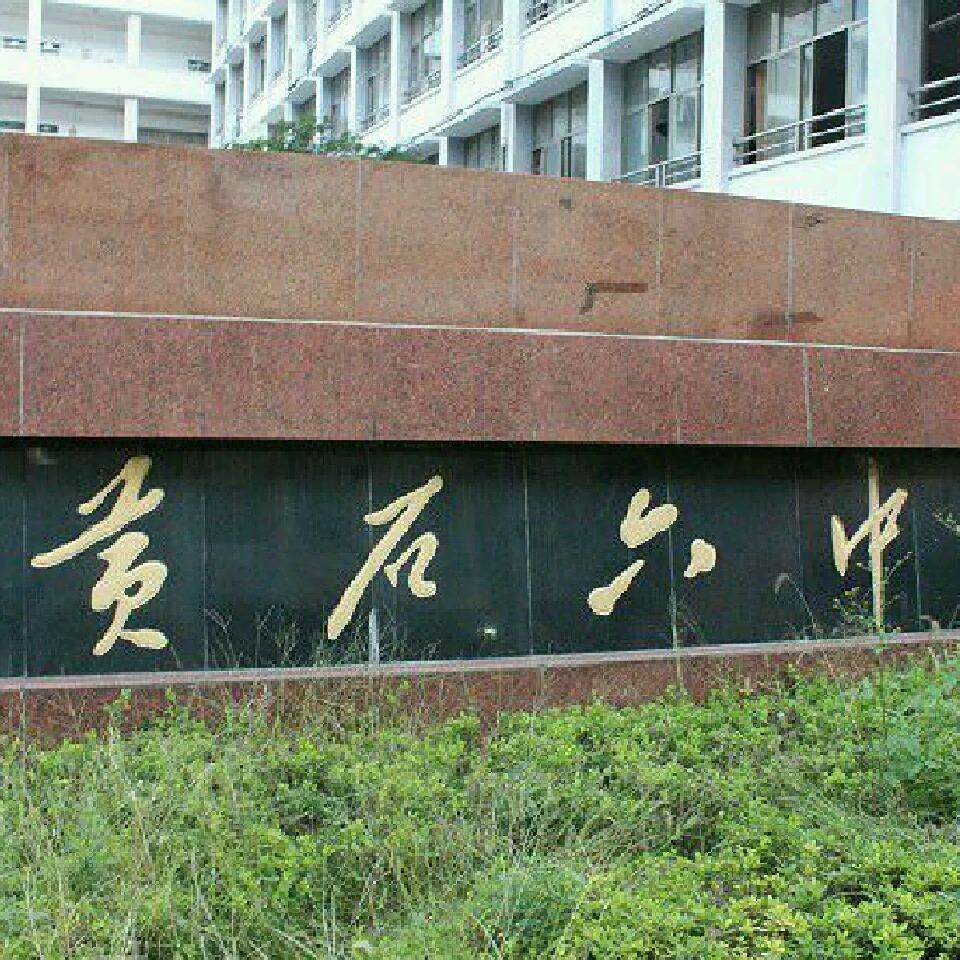 黄石六中